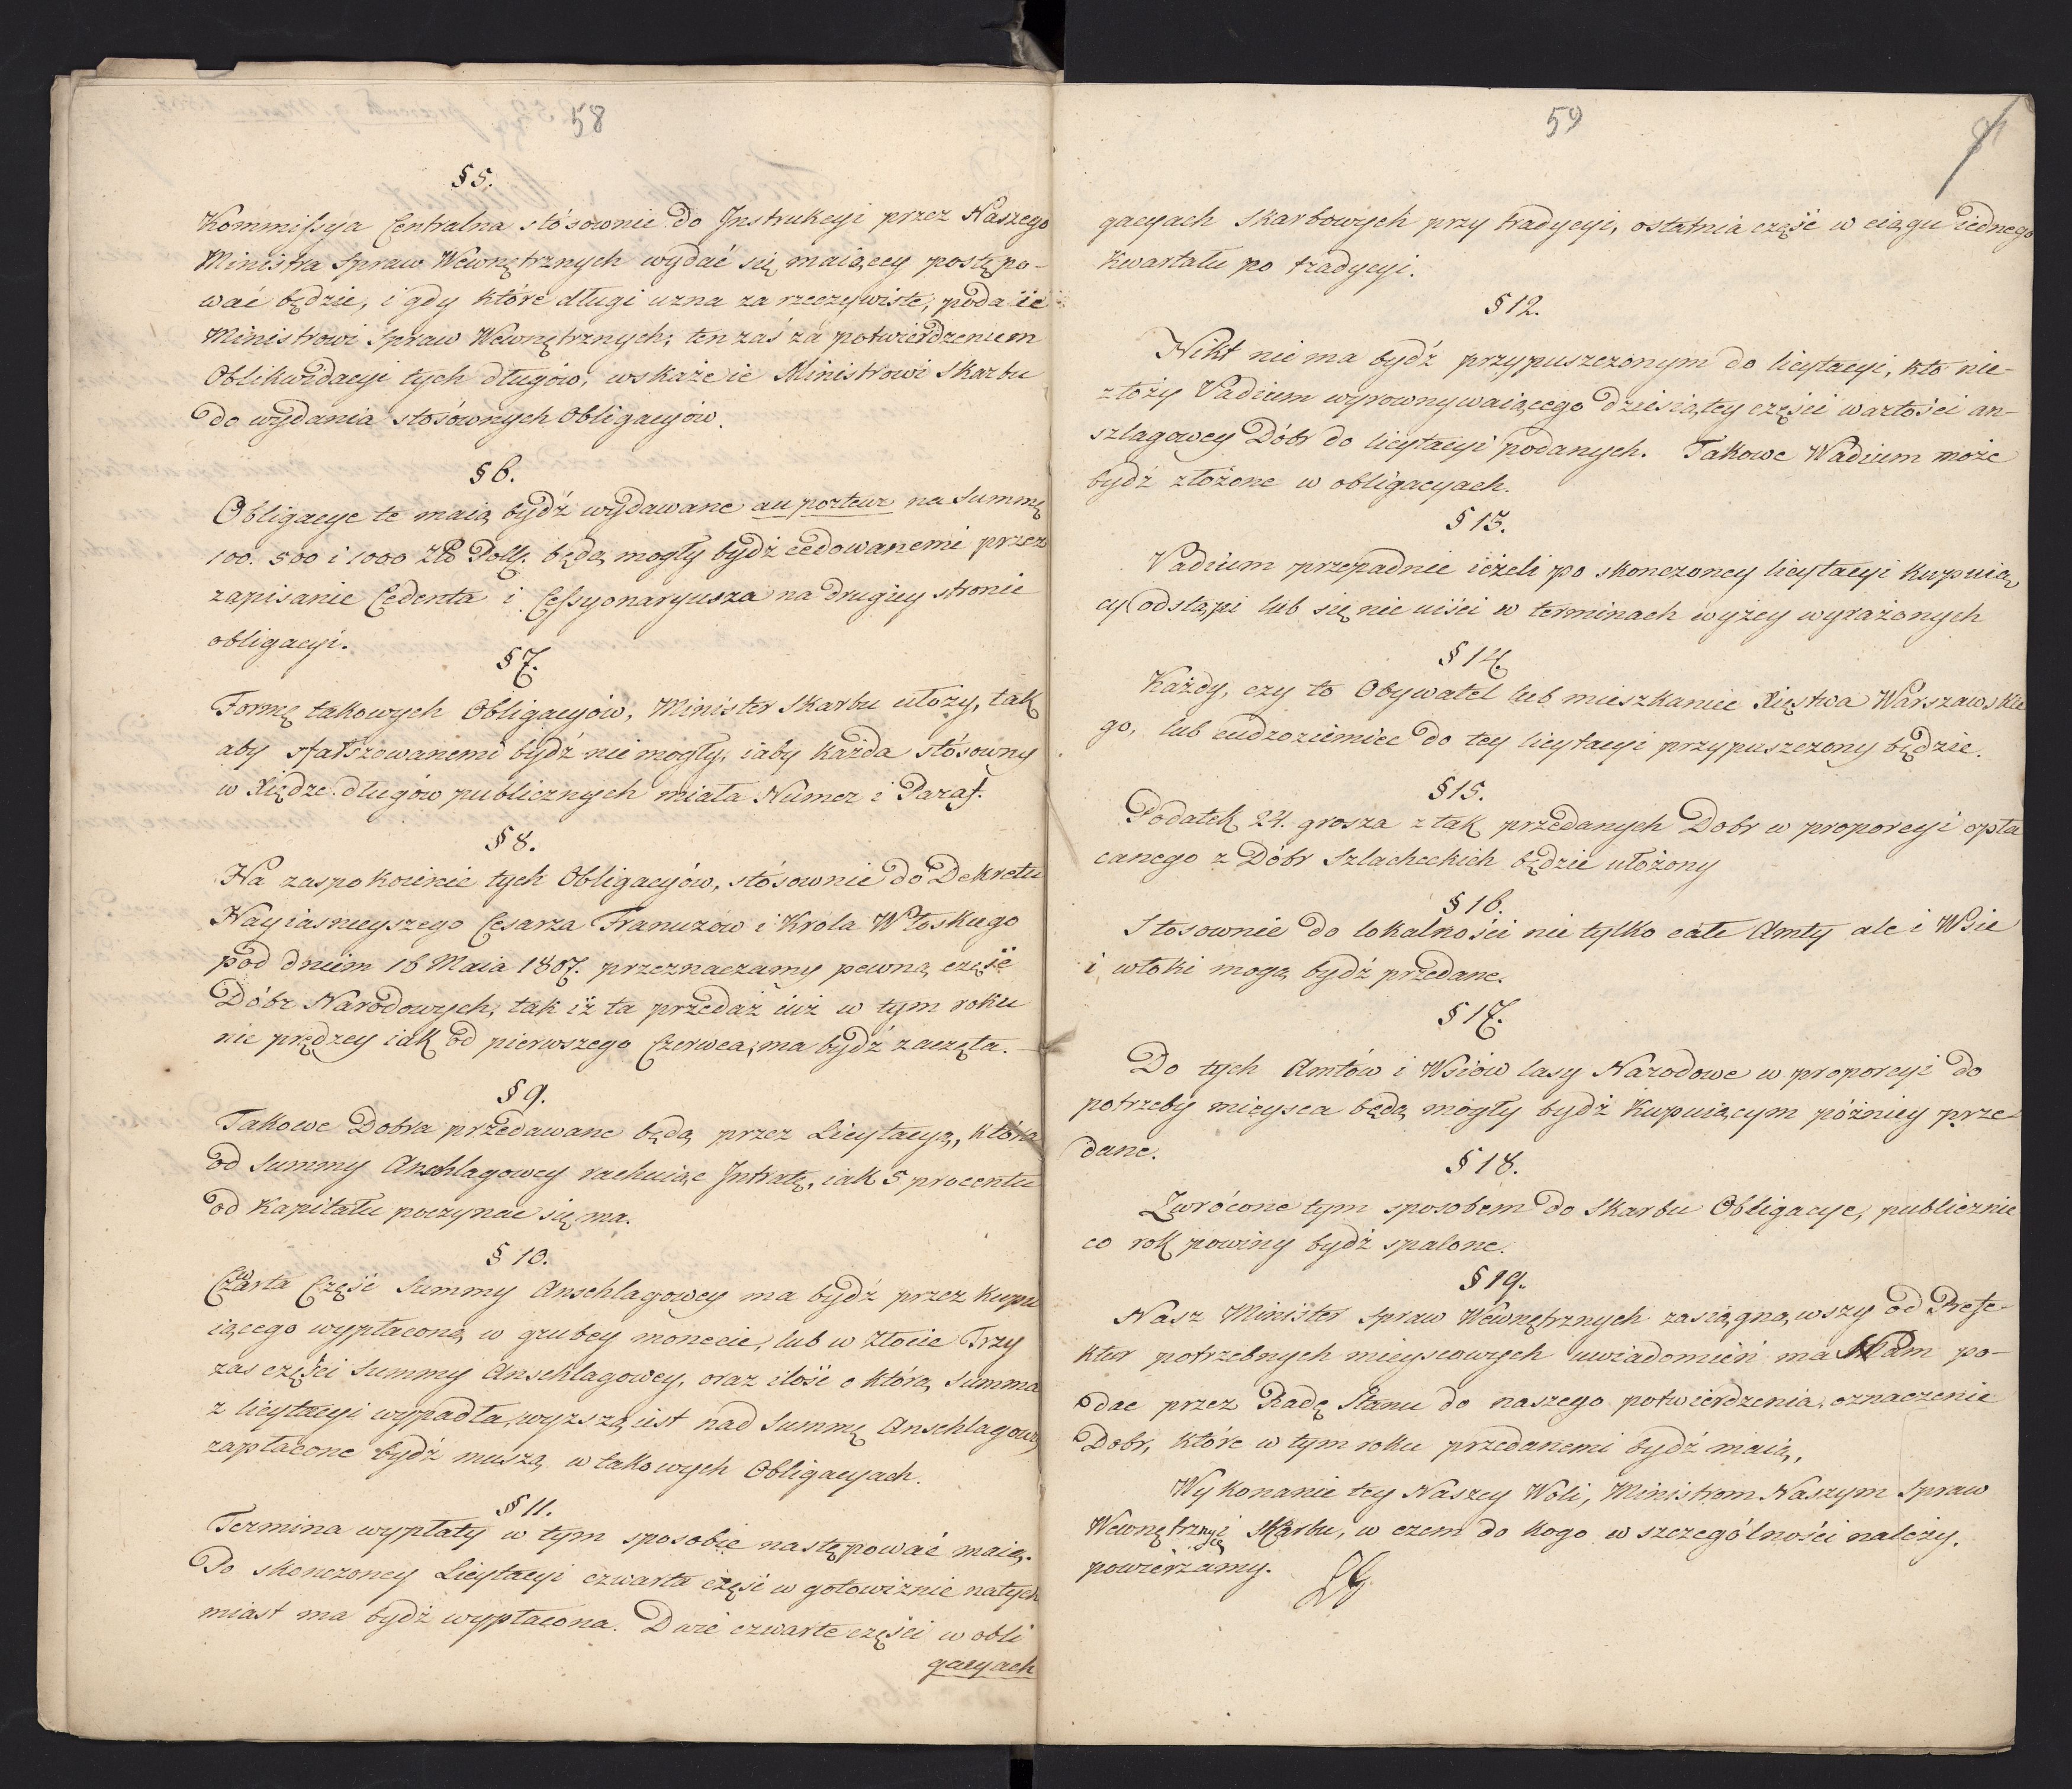 58
§ 5.
Kommissya Centralna stósownie do Instrukcyi przez Naszego
Ministra Spraw Wewnętrznych wydać się maiącey postępo-
wać będzie, i gdy które długi uzna za rzeczywiste, poda ie
Ministrowi Spraw Wewnętrznych; ten zaś za potwierdzeniem
Oblikwidacyi tych długów, wskaże ie Ministrowi Skarbu
do wydania stósownych Obligacyów.
§ 6.
Obligacye te maią bydź wydawane au porteur na Summę
100. 500 i 1000 Zł Pols. będą mogły bydź cedowanemi przez
zapisanie Cedenta i Cessyonaryusza na drugiey stronie
obligacyi.
§ 7.
Formę takowych Obligacyów, Minister Skarbu ułoży, tak
aby sfałszowanemi bydź nie mogły, i aby każda stósowny
w Xiędze długów publicznych miała Numer i Paraf.
§ 8.
Na zaspokoienie tych Obligacyów, stósownie do Dekretu
Nayiasnieyszego Cesarza Franuzów i Krola Włoskiego
pod dniem 16 Maia 1807. przeznaczamy pewną część
Dóbr Narodowych, tak iż ta przedaż iuż w tym roku
nie prędzey iak od pierwszego Czerwca, ma bydź zaczęta.
§ 9.
Takowe Dobra przedawane będą przez Licytacyą, która
od Summy Anschlagowey rachuiąc Intratę, iak 5 procentu
od Kapitału poczynac się ma.
§ 10.
Czwarta Część Summy Anschlagowey ma bydź przez kupu
iącego wypłaconą w grubey monecie, lub w złocie Trzy
zas części Summy Anschlagowey, oraz ilość o którą Summa
z licytacyi wypadła, wyższą iest nad Summę Anschlagową
zapłacone bydź muszą w takowych Obligacyach.
§ 11.
Termina wypłaty w tym sposobie następować maią.
Po skonczoney Licytacyi czwarta część w gotowiznie natych
miast ma bydź wypłacona. Dwie czwarte części w obli
gacyach
59
gacyach Skarbowych przy tradycyi, ostatnia część w ciągu iednego
Kwartału po tradycyi.
§ 12.
Nikt nie ma bydź przypuszczonym do licytacyi, kto nie-
złoży Vadium wyrownywaiącego dziesiątey części wartości an-
szlagowey Dóbr do licytacyi podanych. Takowe Wadium może
bydź złożone w obligacyach.
§ 13.
Vadium przepadnie ieżeli po skonczoney licytacyi kupuią
cy odstąpi lub się nie uiści w terminach wyżey wyrażonych
§ 14.
Każdy, czy to Obywatel lub mieszkaniec Xięstwa Warszawskie
go, lub cudzoziemiec do tey licytacyi przypuszczony będzie.
§ 15.
Podatek 24. grosza z tak przedanych Dobr w proporcyi opła
canego z Dóbr Szlacheckich będzie ułożony
§ 16.
Stosownie do lokalności nie tylko całe Amty ale i Wsie
i włoki mogą bydź przedane.
§ 17.
Do tych Amtów i Wsiów lasy Narodowe w proporcyi do
potrzeby mieysca będą mogły bydź Kupuiącym póżniey prze-
dane.
§ 18.
Zwrócone tym sposobem do Skarbu Obligacye, publicznie
co rok powiny bydź spalone.
§ 19.
Nasz Minister Spraw Wewnętrznych zasiągnąwszy od Prefe-
ktur potrzebnych mieyscowych uwiadomień ma Nam po-
dac przez Radę Stanu do naszego potwierdzenia, oznaczenie
Dobr, które w tym roku przedanemi bydź maią,
Wykonanie tey Naszey Woli, Ministrom Naszym Spraw
Wewnętrzny i Skarbu, w czem do kogo w szczególności należy.
powierzamy.